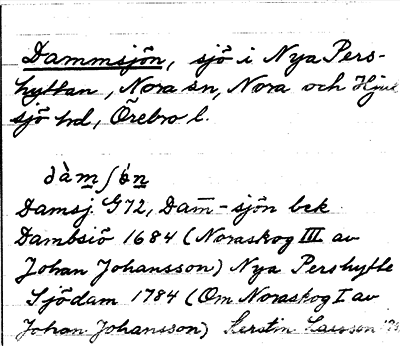 Dammsjön, sjö i Nya Pers-
hyttan, Nora sn, Nora och Hjul
sjö hd, Örebro l.
dàmʃön
Damsj. G72, Dam̄-sjön bek
Dambsiö 1684 (Noraskog III av
Johan Johansson) Nya Pershytte
Sjödam 1784 (Om Noraskog I av
Johan Johansson) Kerstin Larsson